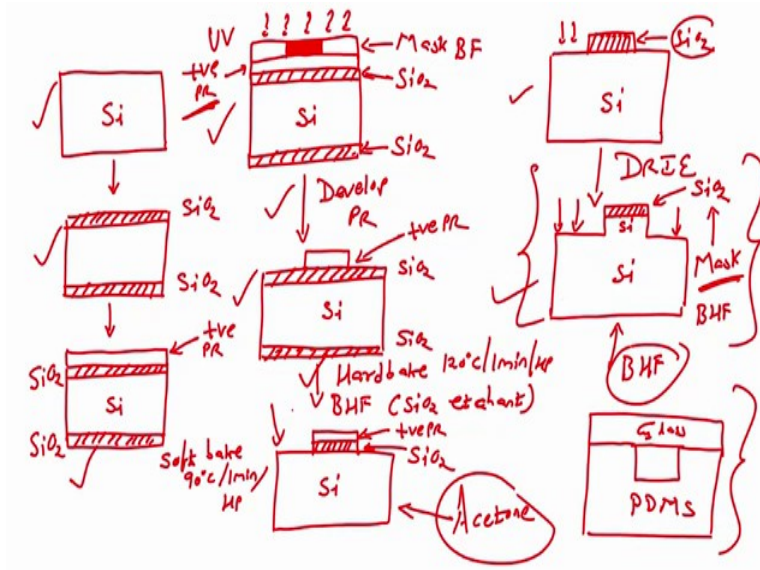 Si
SiO2
SiO2
+ve
PR
SiO2
Si
SiO2
Soft bake
90°C/1min/
HP
UV
Mask BF
+ve
PR
SiO2
Si
SiO2
Develop
PR
+ve PR
SiO2
Si
SiO2
Hardbake 120°C/1min/HP
BHF (SiO2 etchant)
+ve PR
SiO2
Si
Acetone
SiO2
Si
DRIE
SiO2
Si
Si
Mask
BHF
BHF
Glass
PDMS